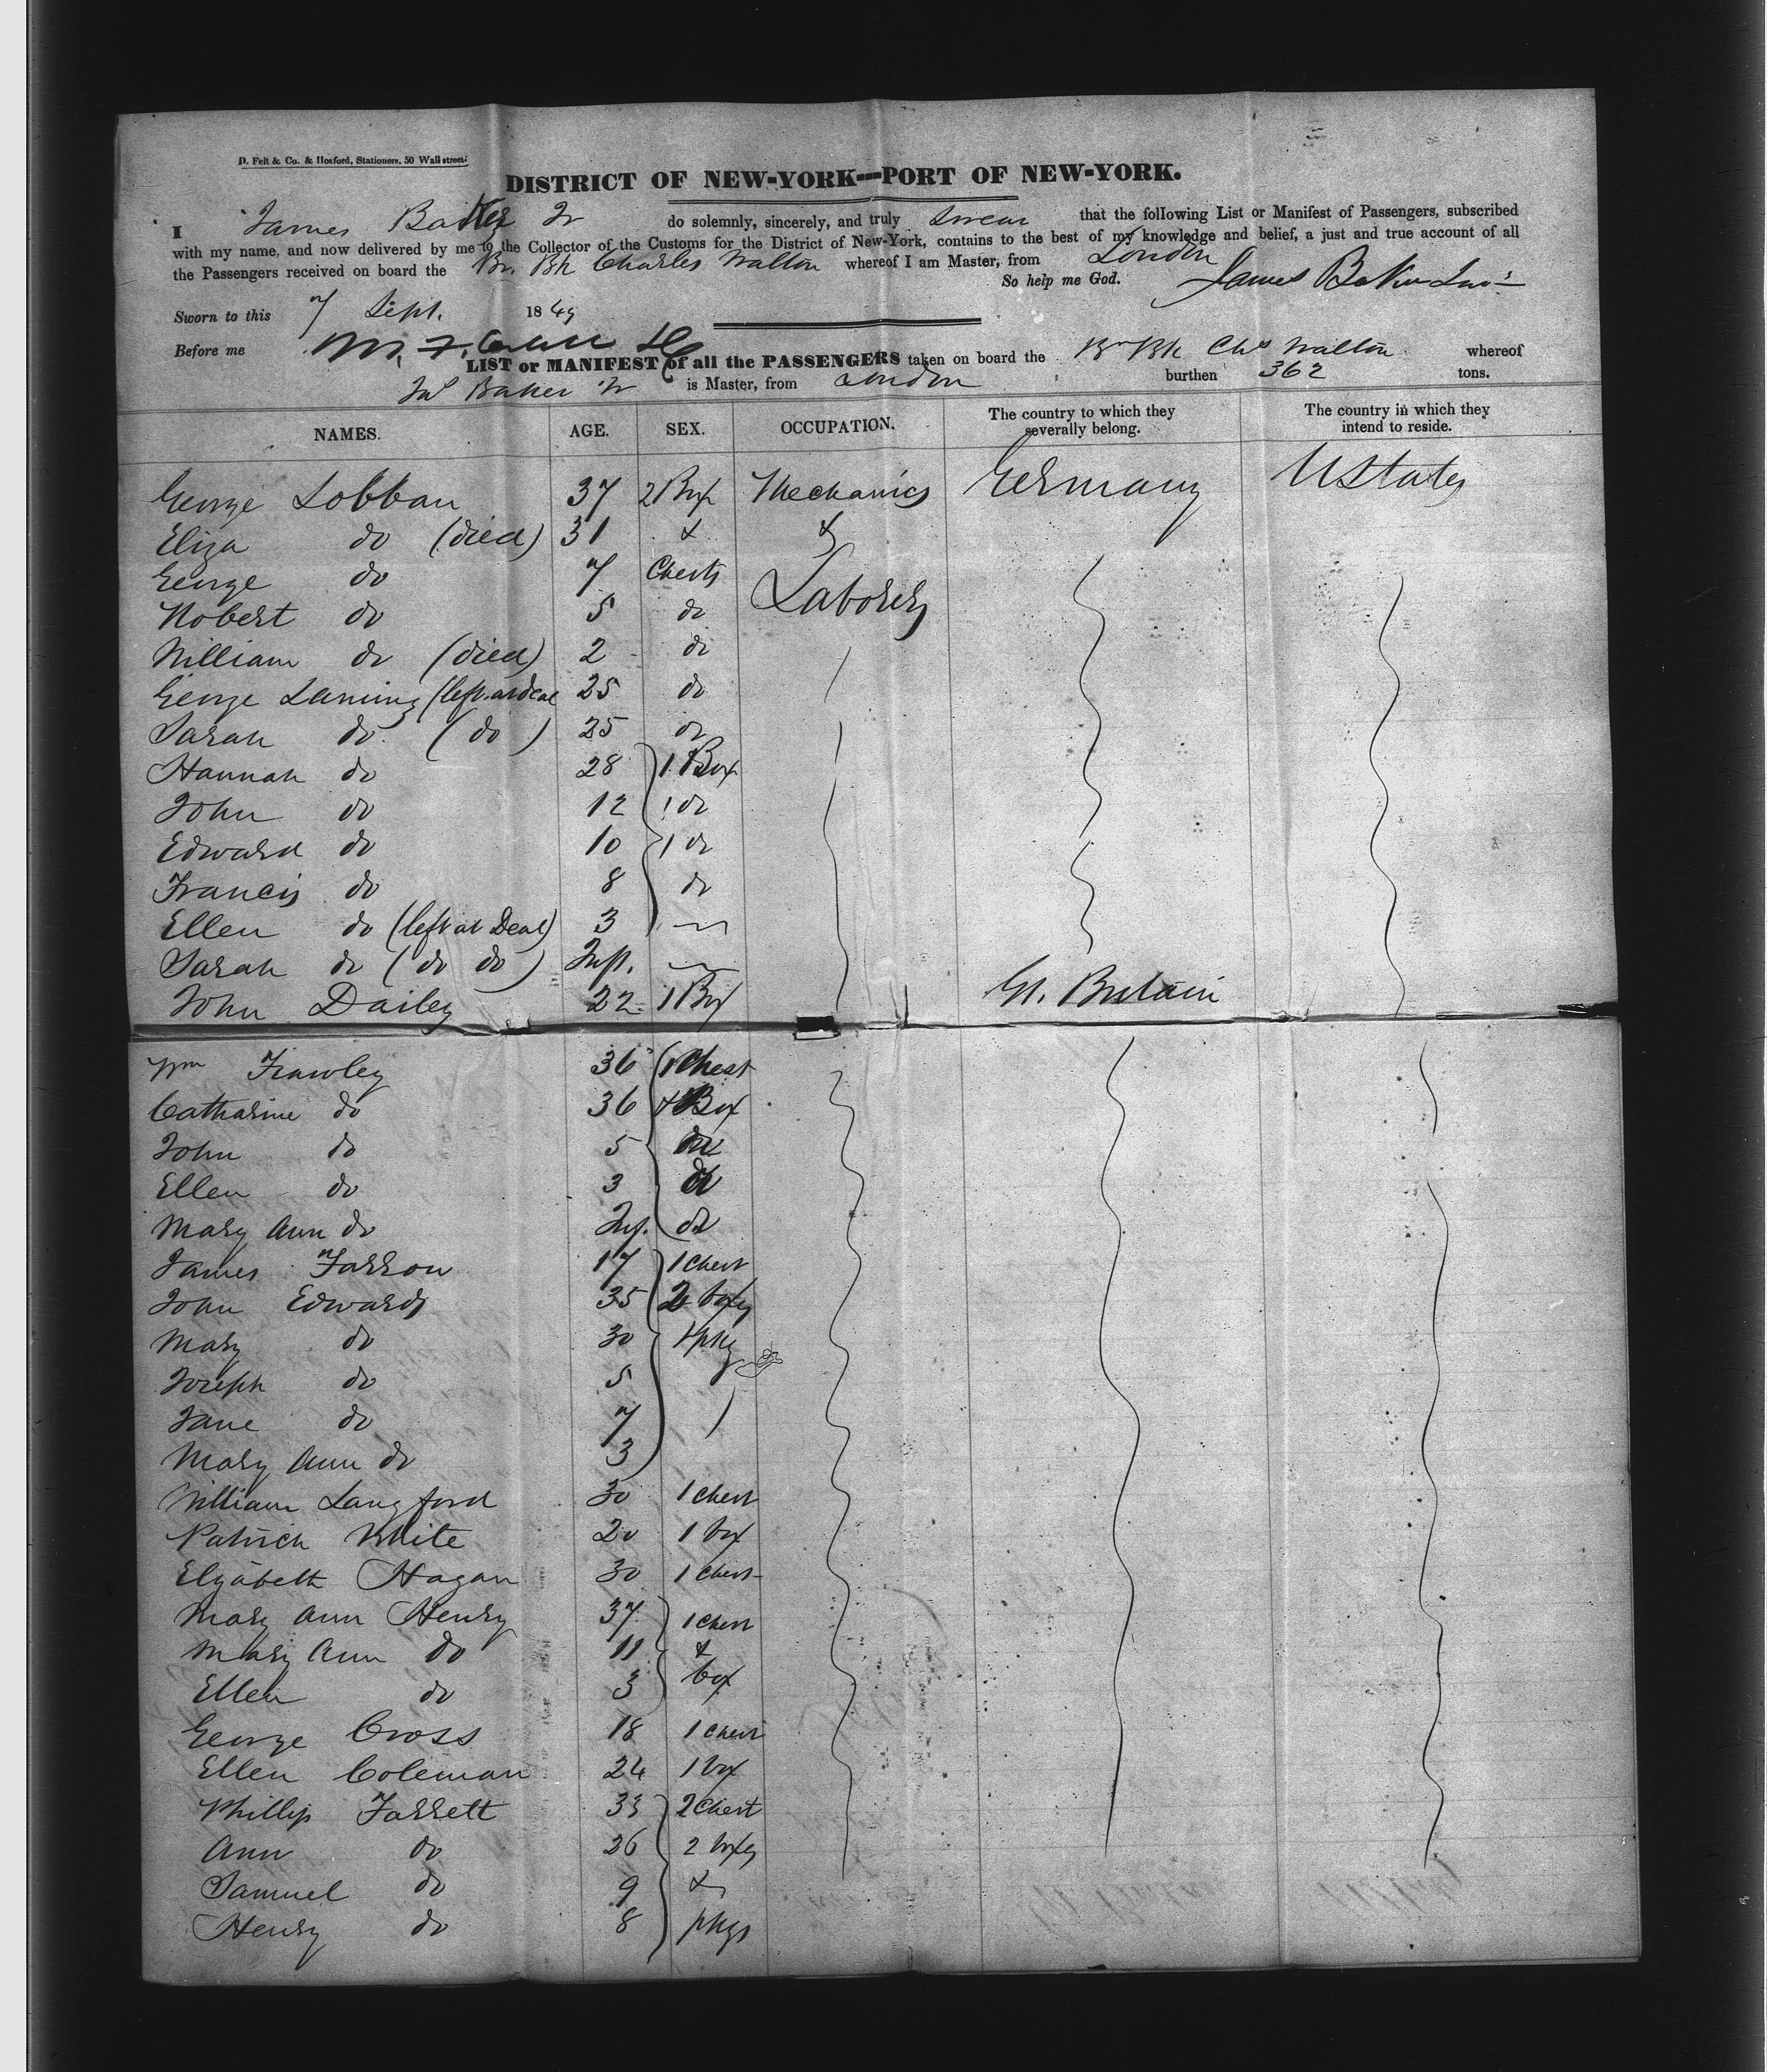 D. Felt & Co. & Hosford, Stationers, 50 Wall street.
DISTRICT OF NEW-YORK—PORT OF NEW-YORK.
I James Baker Jr do solemnly, sincerely, and truly swear that the following List or Manifest of Passengers, subscribed
with my name, and now delivered by me to the Collector of the Customs for the District of New-York, contains to the best of my knowledge and belief, a just and true account of all
the Passengers received on board the Br. Bk Charles Walton whereof I am Master, from London
So help me God. James Baker Junr
Sworn to this 7 Sept. 1849
Before me
LIST or MANIFEST of all the PASSENGERS taken on board the Br Bk Chs Walton whereof
Jas Baker Jr is Master, from London burthen 362 tons.
NAMES. AGE. SEX. OCCUPATION. The country to which they severally belong. The country in which they intend to reside.
George Lobban 37 2 Box Mechanics Germany UStates
Eliza do (died) 31 & &
George do 7 Chests
Robert do 5 do Laborers
William do (died) 2 do
George Laming (left at Deal 25 do
Sarah do (do) 25 do
Hannah do 28 1 Box
John do 12 1 do
Edward do 10 1 do
Francis do 8 do
Ellen do (left at Deal) 3
Sarah do (do do) Inft.
John Dailey 22 1 Box Gt. Britain
Wm Frawley 36 1 Chest
Catharine do 36 & Box
John do 5
Ellen do 3
Mary Ann do Inf. do
James Farron 17 1 Chest
John Edwards 35 2 boxes
Mary do 30 pkg
Joseph do 5
Jane do 7
Mary Ann do 3
William Langford 30 1 Chest
Patrick White 20 1 box
Elizabeth Hagan 30 1 Chest
Mary Ann Henry 37 1 Chest
Mary Ann do 11 &
Ellen do 3 box
George Cross 18 1 Chest
Ellen Coleman 24 1 box
Phillip Farrett 33 2 Chest
Ann do 26 2 boxes
Samuel do 9 &
Henry do 8 pkgs